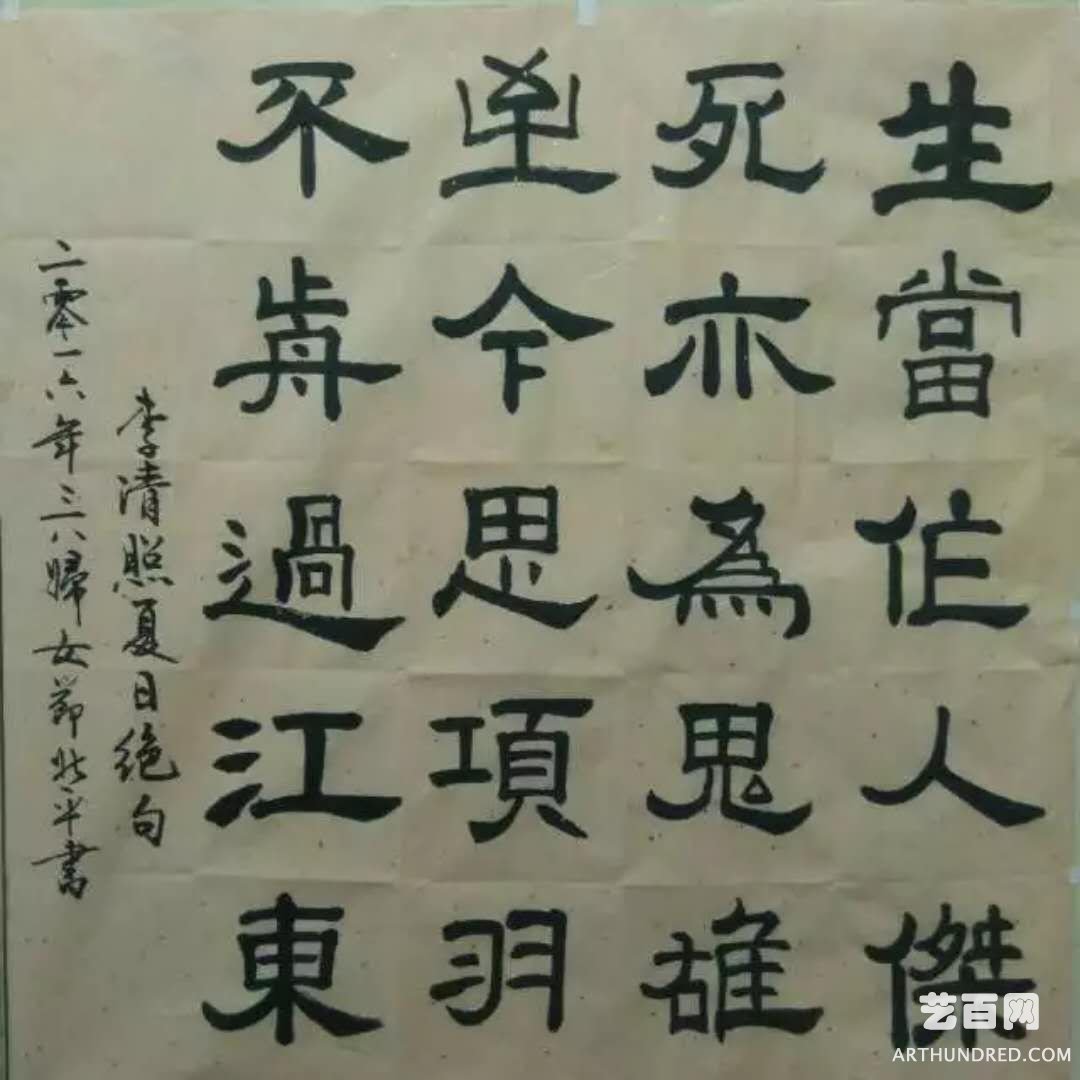 生當作人傑
死亦為鬼雄
至今思項羽
不肯過江東
李清照夏日绝句
二零一六年三八婦女節 平書
艺百网
ARTHUNDRED.COM